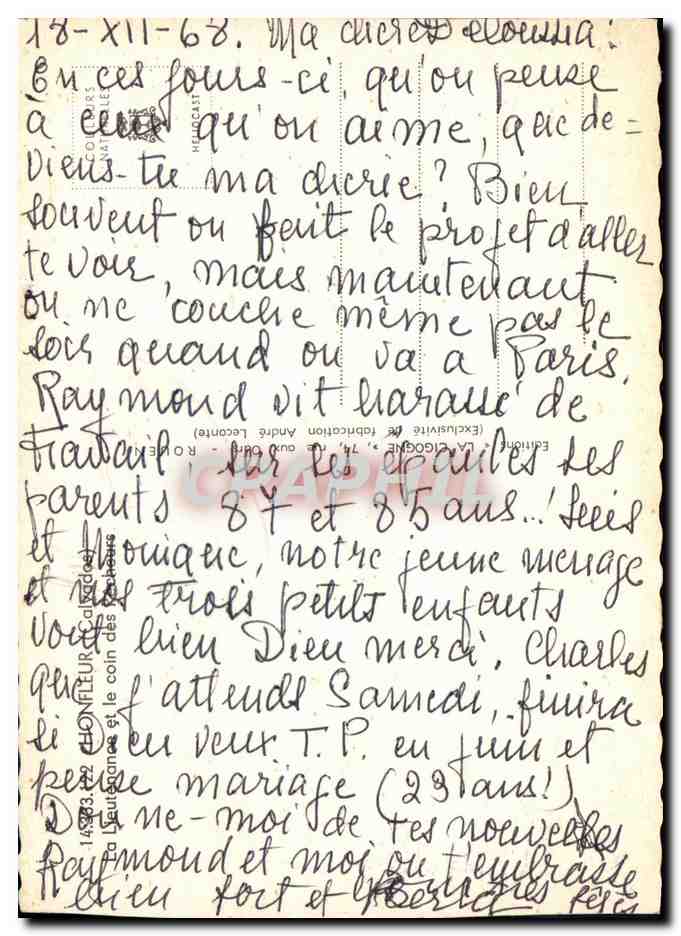 18-XII-68. Ma chère
En ces jours-ci, qu'on pense
à ceux qu'on aime, que de=
viens-tu ma chérie? Bien
souvent on fait le projet d'aller
te voir, mais maintenant
on ne couche même pas le
soir quand on va a Paris.
Raymond vit harassé de
travail, sur ses épaules ses
parents 87 et 85 ans..!
et Monique, notre jeune menage
et nos trois petits enfants
vont bien Dieu merci, Charles
que j'attends Samedi, finira
si Dieu veux T.P. en juin et
pense mariage (23 ans!)
Donne-moi de tes nouvelles
Raymond et moi on t'embrasse
bien fort et
COULEURS
NATURELLES
HELIOCAST
Editions « LA CIGOGNE », 74, rue aux Ours - ROUEN
(Exclusivité de fabrication André Leconte)
CPAPHIL
HONFLEUR (Calvados)
La Lieutenance et le coin des Pêcheurs